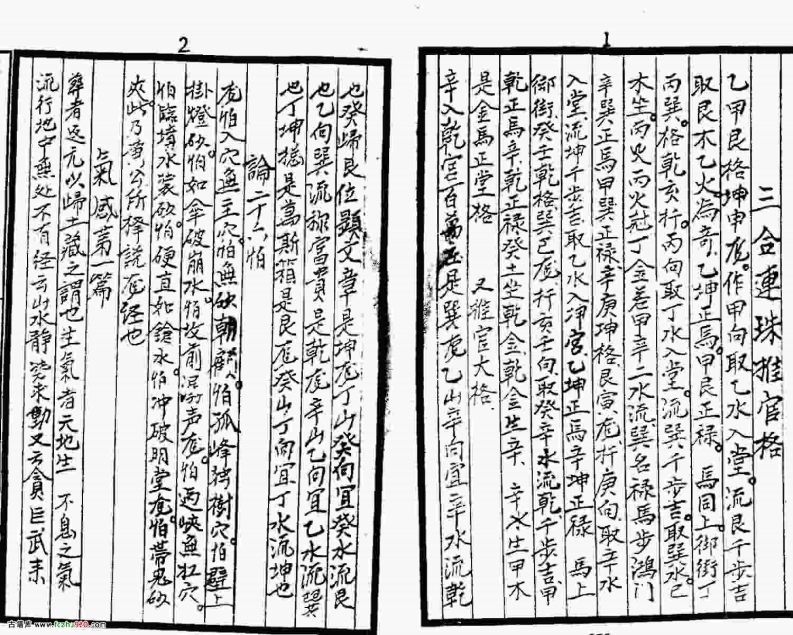 1
三合連珠推官格
乙甲艮格坤申龙。作甲向取乙水入堂。流艮千步吉
取艮木乙火為奇。乙坤正馬。甲艮正禄。馬同上御街丁
丙巽格乾亥行。丙向取丁水入堂。流巽千步吉。取巽水已
木生。丙火丙火尅丁金羞甲辛二水流巽名禄馬步鴻门
辛巽正馬甲巽正禄辛庚坤格。艮寅龙行庚向。取辛水
入堂。流坤千步吉取乙水入坤宫乙坤正馬辛坤正禄 馬上
御街。癸壬乾格巽巳龙行亥壬向。取癸辛水流乾。千步吉甲
乾正馬辛乾正禄癸土坐乾金。乾金生辛、辛水生甲木
是金馬正堂格 又推官大格
辛入乾宫百萬庄是巽龙乙山辛向宜辛水流乾
2
也癸歸艮位顯文章是坤龙丁山癸向宜癸水流艮
也乙向巽流旅富貴是乾龙辛山乙向宜乙水流巽
也丁坤橋是萬斯箱是艮龙癸山丁向宜丁水流坤也
論二十六怕
龙怕入穴無主穴怕無砂朝顧。怕孤峰独樹穴。怕壁上
掛燈砂。怕如傘破崩水怕坟前声龙。怕两峡無扛穴。
怕臨墳水裝砂。怕硬直如鎗水。怕冲破明堂龙怕帶鬼砂
夾此乃所择説龙经也
氣感篇
葬者返元以歸土藏之謂也生氣者元地生 不息之氣
流行地中無处不有经云山水静求動又云貪巨武来
古籍库 www.